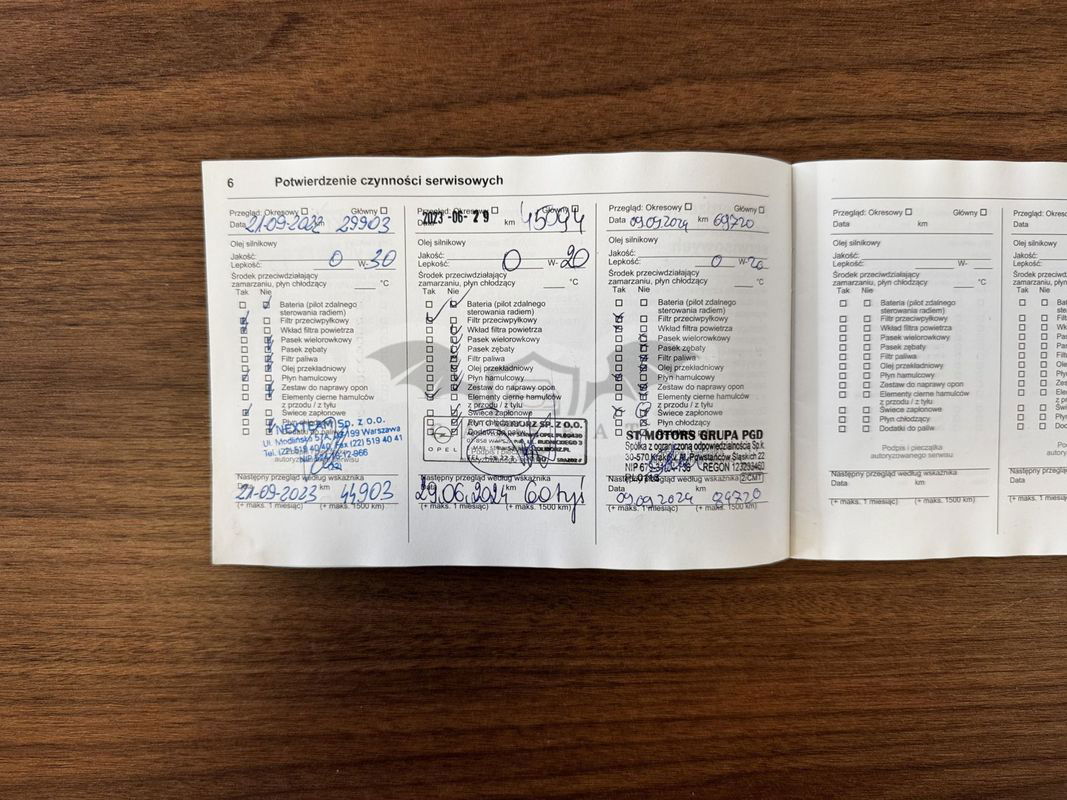 6 Potwierdzenie czynności serwisowych
Przegląd: Okresowy Główny
Data 21-09-2022 km 29903
Olej silnikowy
Jakość:
Lepkość: 0 W- 30
Środek przeciwdziałający
zamarzaniu, płyn chłodzący °C
Tak Nie
Bateria (pilot zdalnego
sterowania radiem)
Filtr przeciwpyłkowy
Wkład filtra powietrza
Pasek wielorowkowy
Pasek zębaty
Filtr paliwa
Olej przekładniowy
Płyn hamulcowy
Zestaw do naprawy opon
Elementy cierne hamulców
z przodu / z tyłu
Świece zapłonowe
Płyn
Dodatki do paliw
NEXTEAM Sp. z o.o.
Ul. Modlińska 03-199 Warszawa
Tel. (22) 519 40 40, Fax (22) 519 40 41
autoryzowanego serwisu
Następny przegląd według wskaźnika
Data 21-09-2023 km 44903
(+ maks. 1 miesiąc) (+ maks. 1500 km)
Przegląd: Okresowy Główny
Data 2023-06-29 km
Olej silnikowy
Jakość:
Lepkość: 0 W- 20
Środek przeciwdziałający
zamarzaniu, płyn chłodzący °C
Tak Nie
Bateria (pilot zdalnego
sterowania radiem)
Filtr przeciwpyłkowy
Wkład filtra powietrza
Pasek wielorowkowy
Pasek zębaty
Filtr paliwa
Olej przekładniowy
Płyn hamulcowy
Zestaw do naprawy opon
Elementy cierne hamulców
z przodu / z tyłu
Świece zapłonowe
Płyn
SP. Z O.O.
Dodatki do paliw
OPEL
Następny przegląd według wskaźnika
29.06.2024 60 tyś
(+ maks. 1 miesiąc) (+ maks. 1500 km)
Przegląd: Okresowy Główny
Data 09.09.2024 km 69720
Olej silnikowy
Jakość:
Lepkość: 0 W- 20
Środek przeciwdziałający
zamarzaniu, płyn chłodzący °C
Tak Nie
Bateria (pilot zdalnego
sterowania radiem)
Filtr przeciwpyłkowy
Wkład filtra powietrza
Pasek wielorowkowy
Pasek zębaty
Filtr paliwa
Olej przekładniowy
Płyn hamulcowy
Zestaw do naprawy opon
Elementy cierne hamulców
z przodu / z tyłu
Świece zapłonowe
Płyn chłodzący
ST MOTORS GRUPA PGD
Spółka z ograniczoną odpowiedzialnością Sp.k.
30-570 Kraków, Al. Powstańców Śląskich 22
NIP REGON 123293460
Następny przegląd według wskaźnika 2/CMT
Data 09.09.2024 km 84720
(+ maks. 1 miesiąc) (+ maks. 1500 km)
Przegląd: Okresowy Główny
Data km
Olej silnikowy
Jakość:
Lepkość: W-
Środek przeciwdziałający
zamarzaniu, płyn chłodzący °C
Tak Nie
Bateria (pilot zdalnego
sterowania radiem)
Filtr przeciwpyłkowy
Wkład filtra powietrza
Pasek wielorowkowy
Pasek zębaty
Filtr paliwa
Olej przekładniowy
Płyn hamulcowy
Zestaw do naprawy opon
Elementy cierne hamulców
z przodu / z tyłu
Świece zapłonowe
Płyn chłodzący
Dodatki do paliw
Podpis i pieczątka
autoryzowanego serwisu
Następny przegląd według wskaźnika
Data km
(+ maks. 1 miesiąc) (+ maks. 1500 km)
Przegląd: Okres
Data
Olej silnikowy
Jakość:
Lepkość:
Środek przeciwdz
zamarzaniu, płyn
Tak Nie
Następny przegląd
Data
(+ maks. 1 miesią